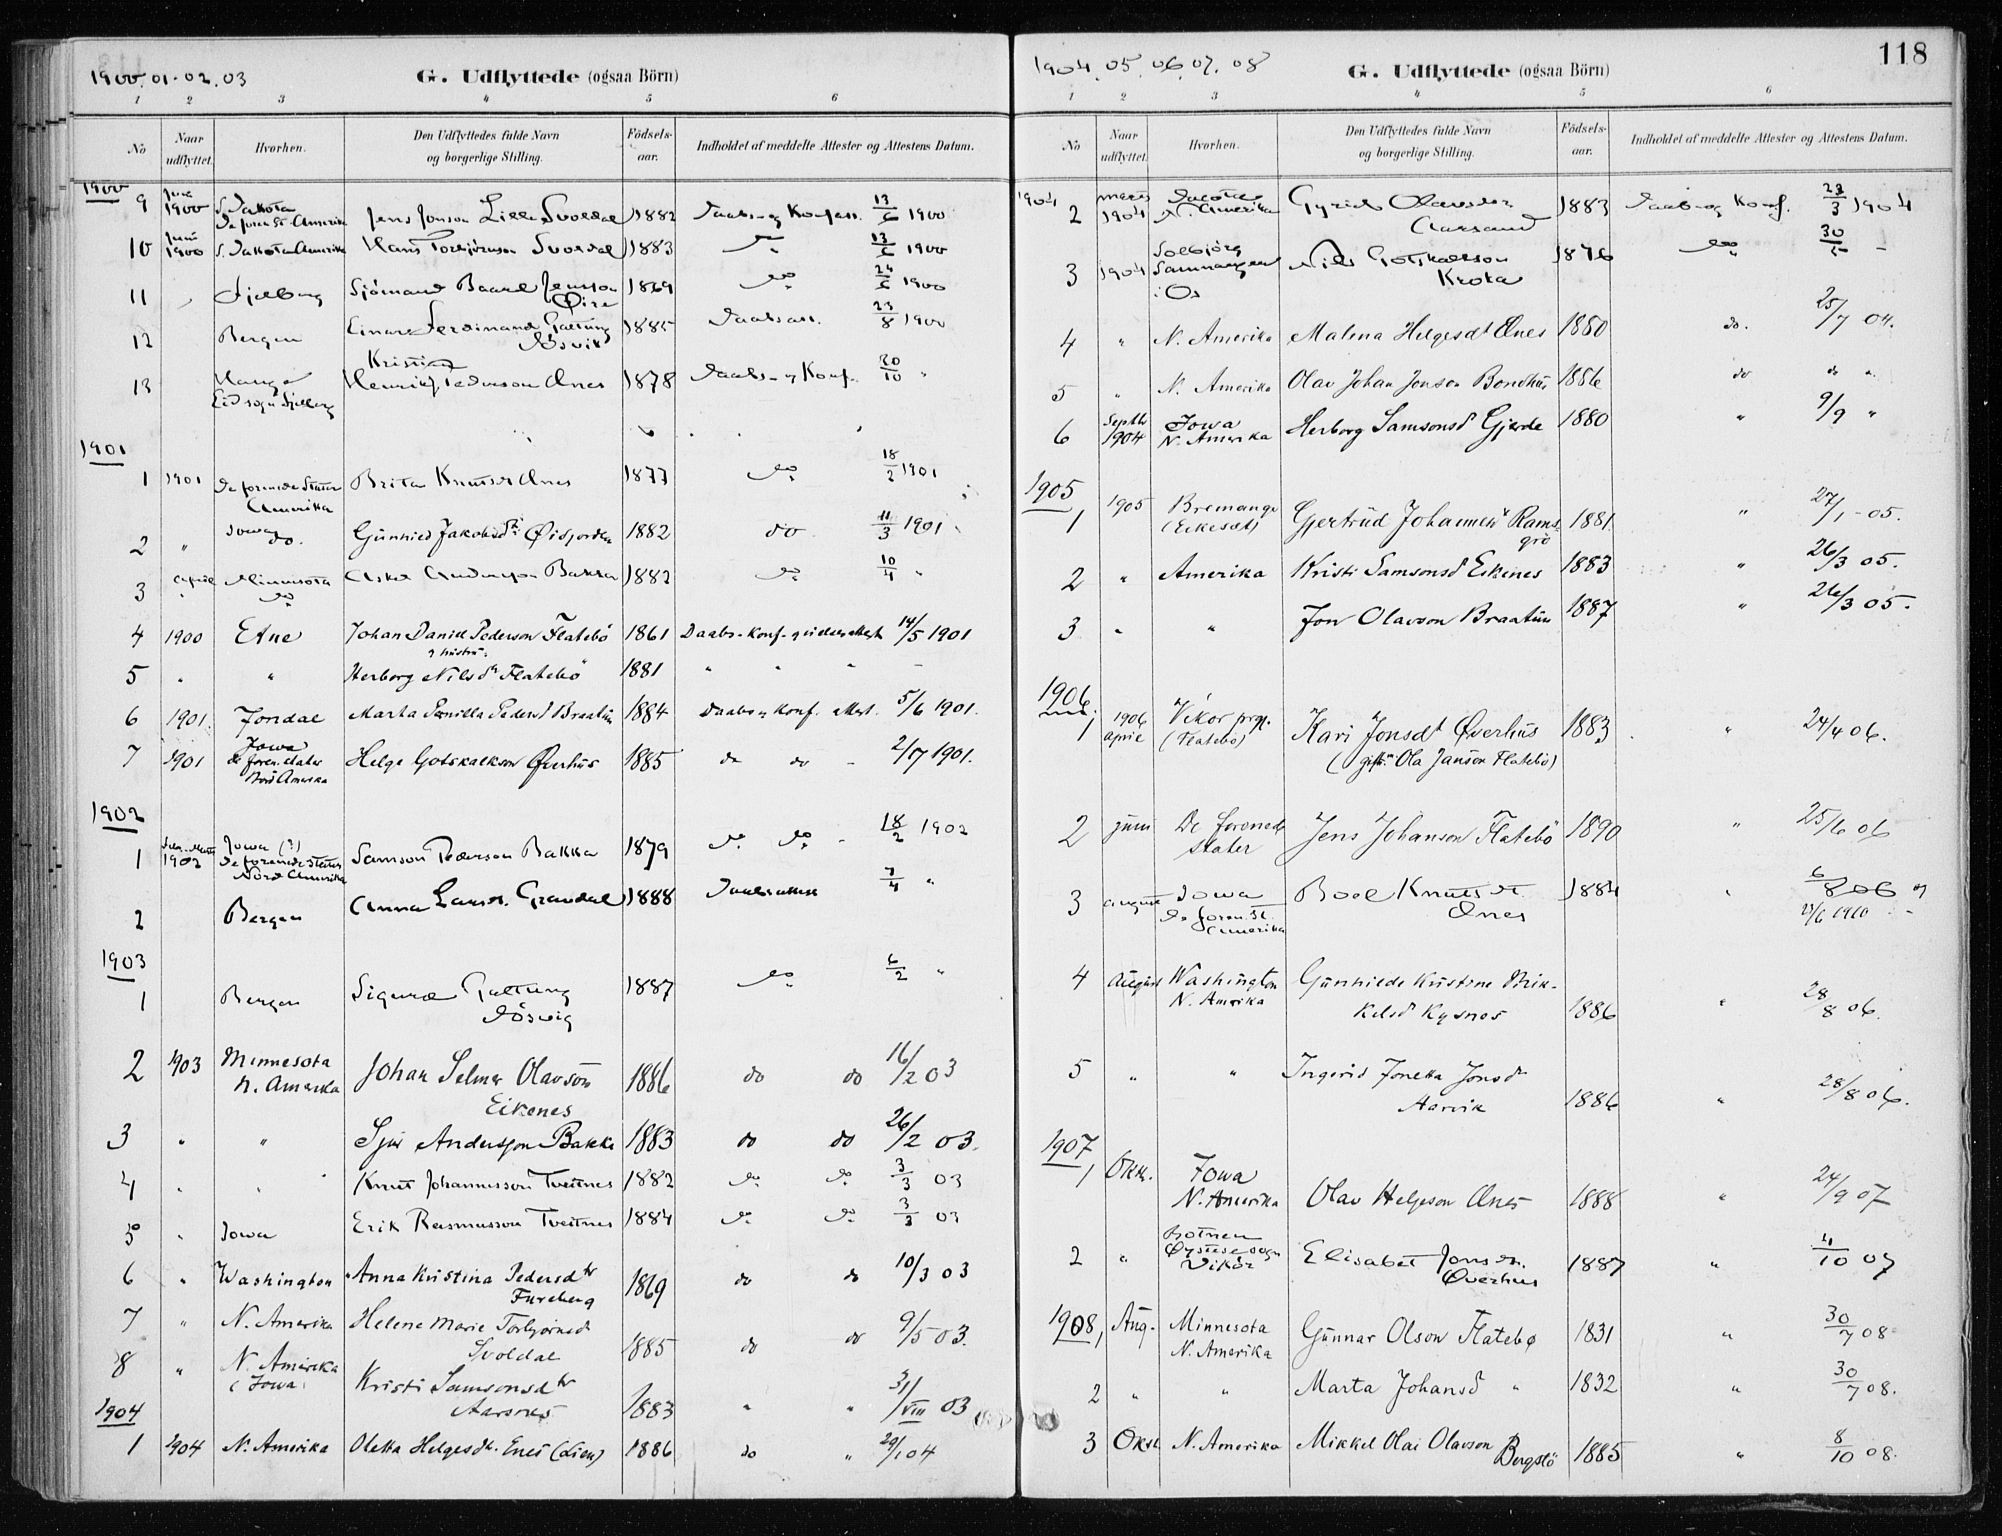 1900. 01. 02. 03
G. Udflyttede (ogsaa Börn)
1 2 3 4 5 6
No
Naar udflyttet.
Hvorhen.
Den Udflyttedes fulde Navn og borgerlige Stilling.
Födsels-aar.
Indholdet af meddelte Attester og Attestens Datum.
1900
9 1900 S. Dakota De foren. St. Amerika Jens Jonson Lille Svoldal 1882 Daabs og Konf.att. 13/6 1900
10 Juni 1900 S. Dakota Amerika Hans Torbjörnson Svoldal 1883 do 13/6 1900
11 Fjelberg Sjömand Baard Jensson Øire 1869 do 1900
12 Bergen Einar Ferdinand Gattung Løsvik 1885 Daabsatt. 23/8 1900
13 Eid sogn Fjelberg Kristian Henrik Pederson Ænes 1878 Daabs- og Konf. 30/10 "
1901
1 1901 De forenede Stater Amerika Brita Knutsdt Ænes 1877 do 18/2 1901
2 " Iowa do. Gunhild Jakobsdtr Øisjorden 1882 do 11/3 1901
3 April Minnesota do Anderson Bakka 1882 do 10/4 "
4 1900 Etne Johan Daniel Pederson Flatebö 1861 Daabs-konf- 14/5 1901
g hustru:
5 " " Herborg Nilsdtr Flatebö 1881 " " " -
6 1901. Jondal Marta Pernilla Pedersd Braatün 1884 Daabs og konf. attest. 5/6 1901.
7 1901 Jowa de foren. stater Nord Amerika Helge Gotskalkson Øverhüs 1885 do do - 2/7 1901.
1902
1 1902 Jowa (?) de forenede stater Nord Amerika Samson Pederson Bakka 1879 do do - 18/2 1902
2 Bergen Anna Larsdt. Grandal 1888 Daabsattest 7/4 "
1903
1 Bergen Sigurd Gattung Løsvig 1887 do 6/2 "
2 1903 Minnesota N. Amerika Johan Selmer Olavson Eikenes 1886 do do 16/2 03
3 " " Sjur Andersson Bakke 1883 do do 26/2 03.
4 " " Knut Johannesson Tveitnes 1882 do do 3/3 03
5 " Iowa Erik Rasmusson Tveitnes 1884 do do 3/3 03
6 " Washington Anna Kristina Pedersdtr Fureberg 1869 do do 10/3 03
7 " N. Amerika Helene Marie Torbjörnsd Svoldal 1885 do do 9/5 03.
8 " N. Amerika (Iowa) Kristi Samsonsdtr Aarsnes 1883 " " 31/VIII 03
1904
1 1904 N. Amerika Oletta Helgesdtr. Enes (Lien) 1886 do " 29/1 04
1904. 05. 06. 07. 08
G. Udflyttede (ogsaa Börn)
118
1 2 3 4 5 6
No
Naar udflyttet.
Hvorhen.
Den Udflyttedes fulde Navn og borgerlige Stilling.
Födsels-aar.
Indholdet af meddelte Attester og Attestens Datum.
1904
2 marts 1904 Dacota N. Amerika Gyrid Olavsdtr Aarsand 1883 Daab og Konf. 23/3 1904
3 1904 Solbjörg Samnanger i Os Nils Gotskalkson Krota 1876 do 30/5 -
4 " N. Amerika Malena Helgesdt Ænes 1880 do. 25/7 04.
5 " N. Amerika Olav Johan Jonson Bondhüs 1886 do do "
6 Septbr 1904 Jowa N. Amerika Herborg Samsonsd Gjerde 1880 " 9/9 "
1905
1 1905 Bremanger Gjertrüd Johannesd Ramsgrö 1881 " 27/1-05.
2 " Amerika Kristi Samsonsd Eikenes 1883 " 26/3 05.
3 " " Jon Olavson Braatün 1887 " 26/3 05.
1906
1 1906 April Vikør prgj. (Flatebö) Kari Jonsdt Øverhüs 1883 " 24/4 06.
(gift m Ola Janson Flatebö)
2 juni De forenede stater Jens Johanson Flatebö 1890 " 25/6 06
3 august Iowa De foren. St. Amerika Boel Knutsdt Ænes 1884 " 6/8 06 og
23/6 1910
4 Augüst Washington N. Amerika Günhilde Kristine Mikkelsd Kysnes 1886 " 28/8 06.
5 " " Ingerid Jonetta Jonsd Aarvik 1886 " 28/8 06.
1907
1 Oktr. Iowa N. Amerika Olav Helgeson Ænes 1888 " 24/9 07
2 " Botnen Øystese sogn Vikör Elisabet Jonsdtr. Øverhus 1887 " 11/10 07
1908
1 Aug. Minnesota N. Amerika Günnar Olson Flatebø 1831 " 30/7 08
2 " " Marta Johansd " 1832 " 30/7 08.
3 Oktr N. Amerika Mikkel Olai Olavson Bergstö 1885 " 8/10 08.